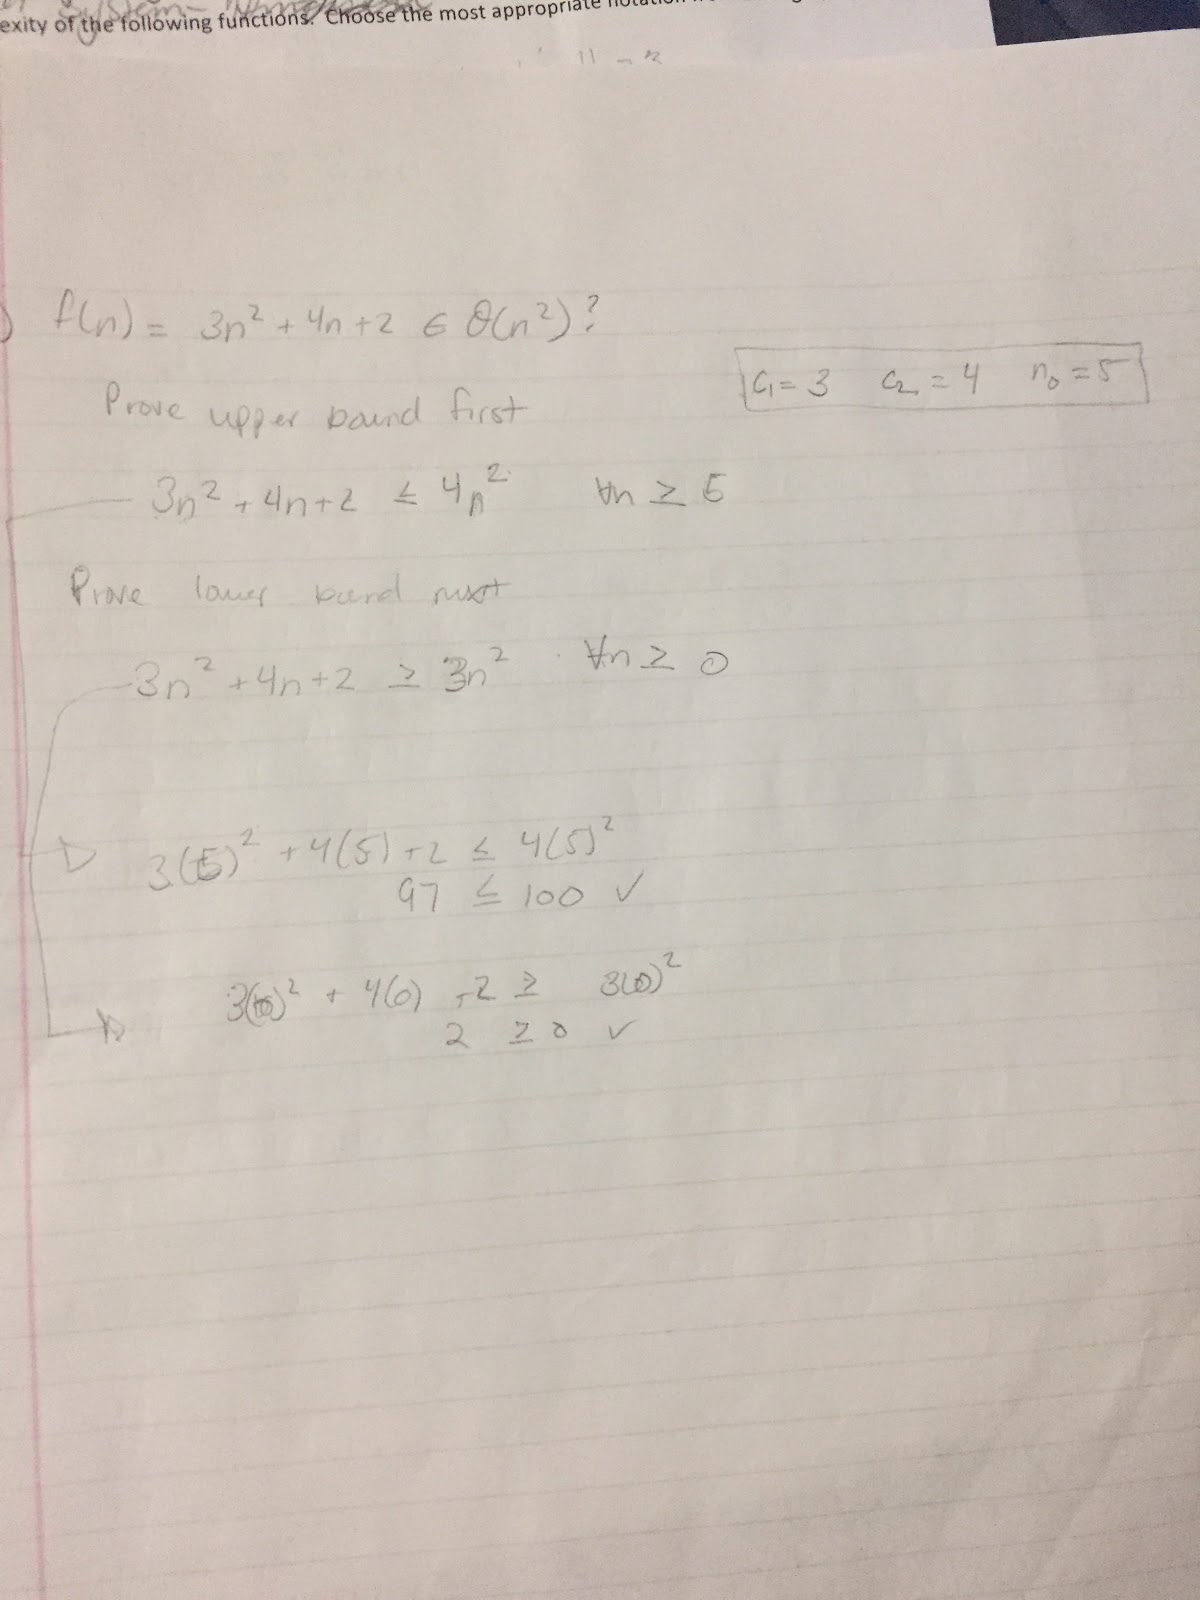 exity of the following functions. Choose the most appropriate
f(n) = 3n² + 4n + 2 ∈ θ(n²)?
C₁ = 3 C₂ = 4 n₀ = 5
Prove upper bound first
3n² + 4n + 2 ≤ 4n² ∀n ≥ 5
Prove lower bound next
3n² + 4n + 2 ≥ 3n² ∀n ≥ 0
3(5)² + 4(5) + 2 ≤ 4(5)²
97 ≤ 100 ✓
3(0)² + 4(0) + 2 ≥ 3(0)²
2 ≥ 0 ✓